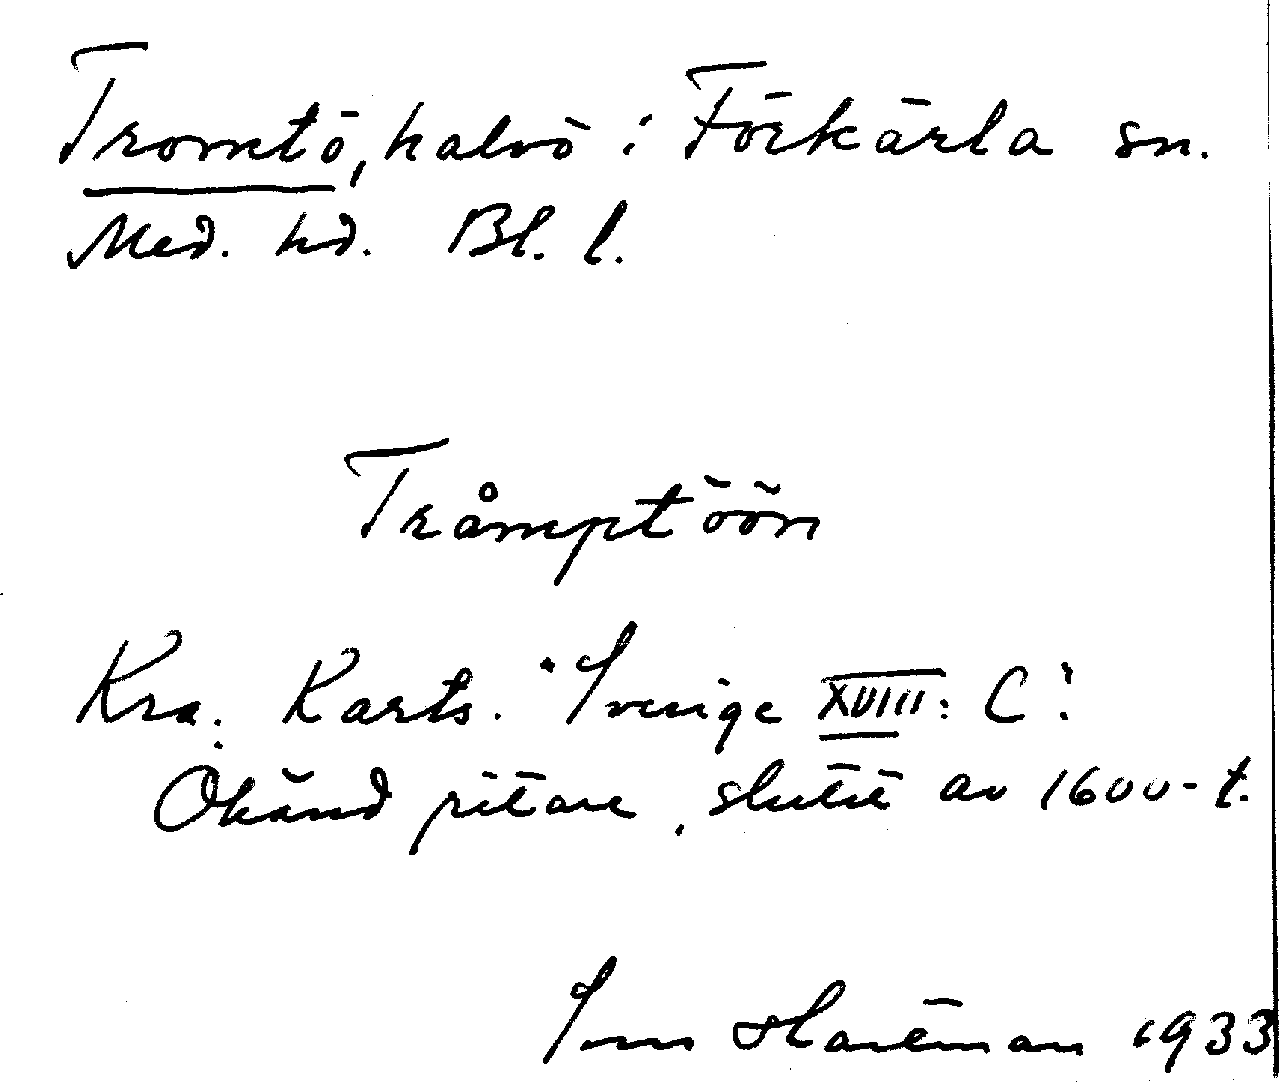 Tromtö, halvö i Förkärla sn.
Med. hd. Bl. l.
Tråmptöön
Kra. Karts. "Sverige XVIII: C"
Okänd ritare, slutet av 1600-t.
Hartman 1933